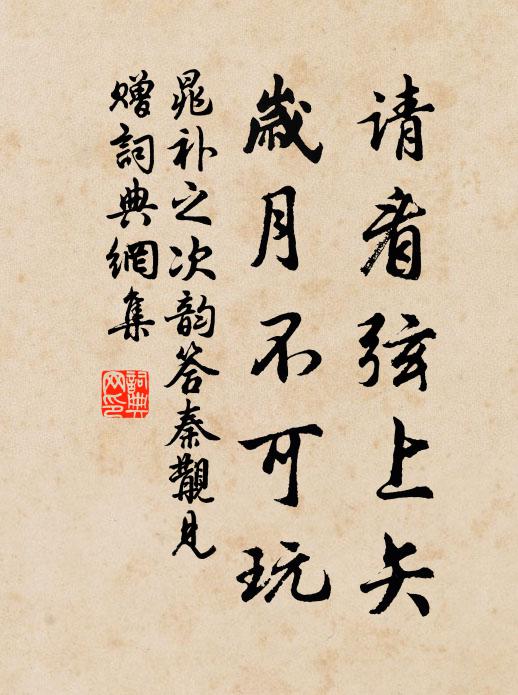 请看弦上矢
歳月不可玩
晁补之次韵答秦觏见
赠詞典網集
詞典
网印